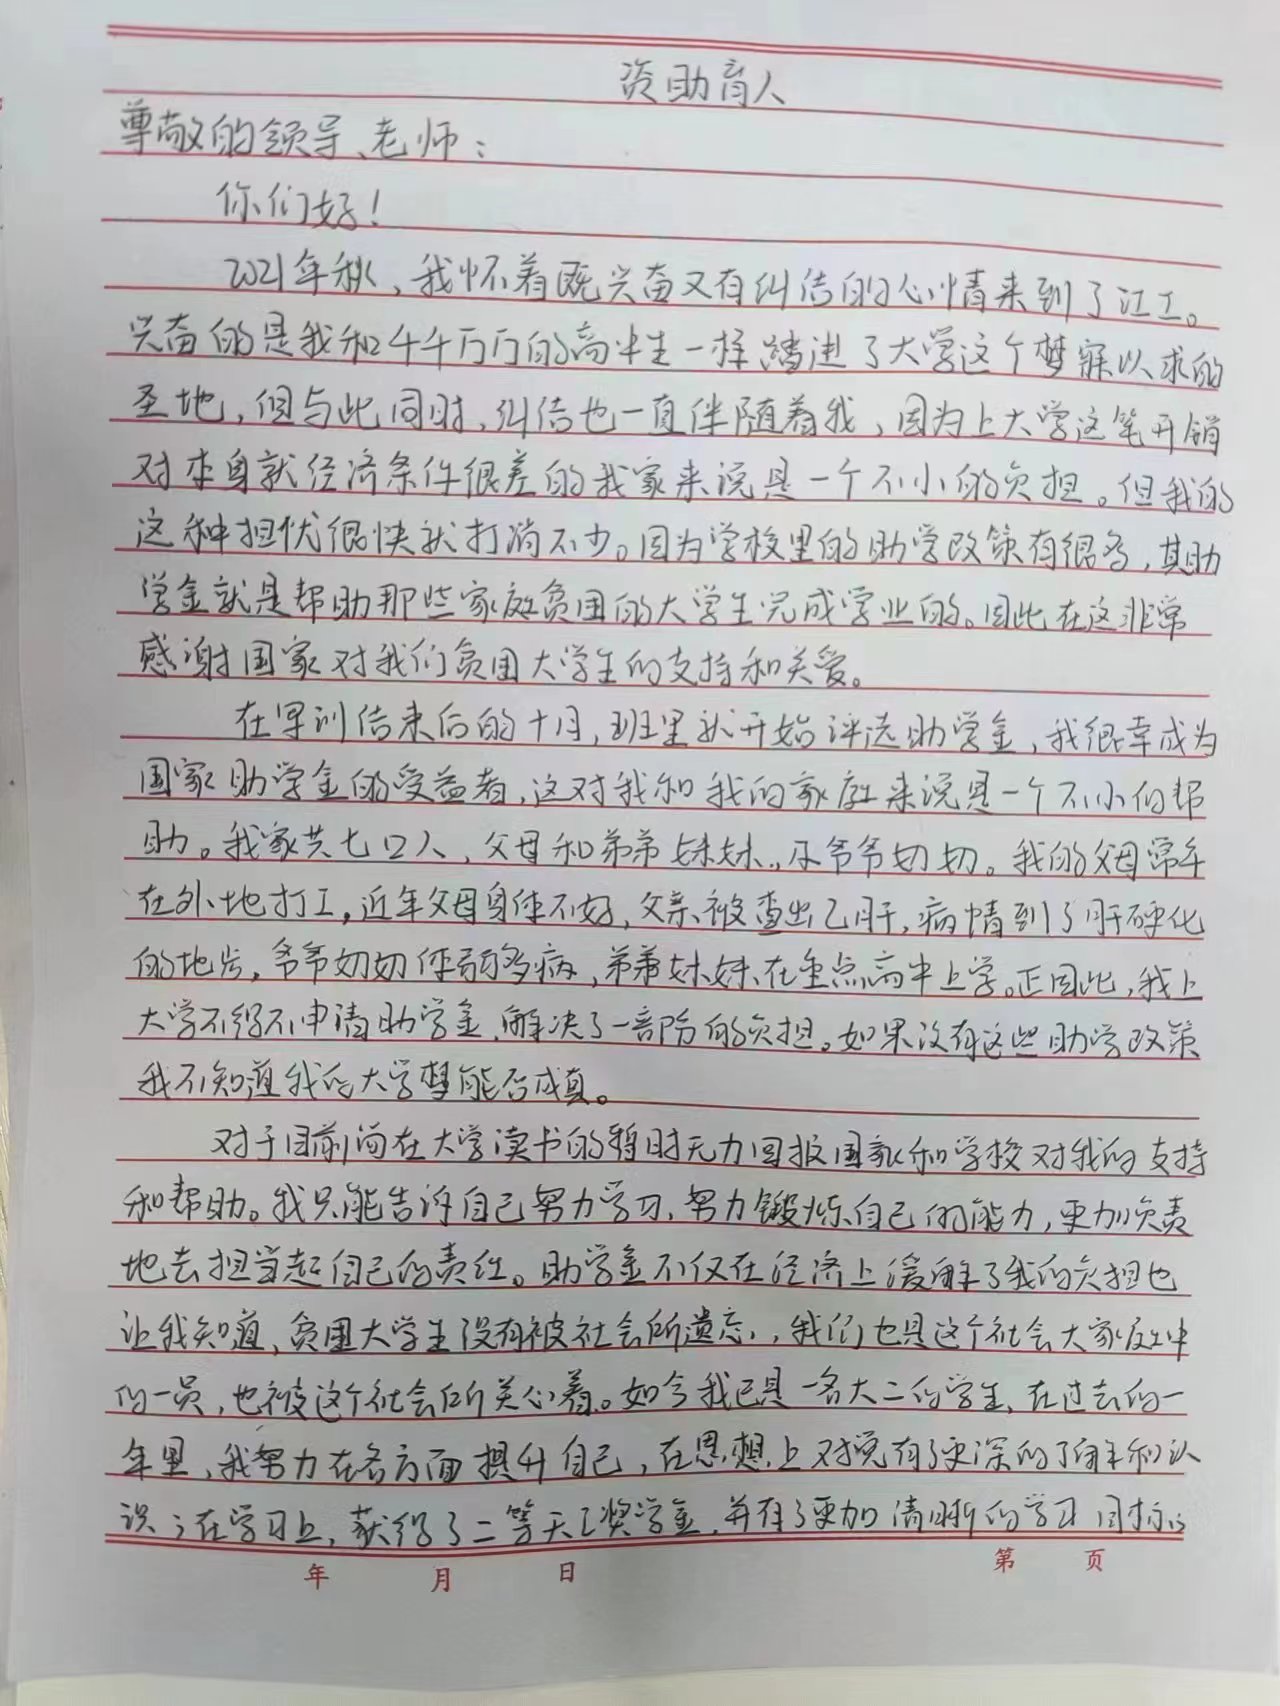 资助育人
尊敬的领导、老师：
你们好！
2021年秋，我怀着既兴奋又有纠结的心情来到了江工。
兴奋的是我和千千万万的高中生一样踏进了大学这个梦寐以求的
圣地，但与此同时，纠结也一直伴随着我，因为上大学这笔开销
对本身就经济条件很差的我家来说是一个不小的负担。但我的
这种担忧很快就打消不少。因为学校里的助学政策有很多，其助
学金就是帮助那些家庭贫困的大学生完成学业的。因此在这非常
感谢国家对我们贫困大学生的支持和关爱。
在军训结束后的十月，班里就开始评选助学金，我很幸成为
国家助学金的受益者，这对我和我的家庭来说是一个不小的帮
助。我家共七口人，父母和弟弟妹妹，及爷爷奶奶。我的父母常年
在外地打工，近年父母身体不好，父亲被查出乙肝，病情到了肝硬化
的地步，爷爷奶奶体弱多病，弟弟妹妹在重点高中上学。正因此，我上
大学不得不申请助学金，解决了一部份的负担。如果没有这些助学政策
我不知道我的大学梦能否成真。
对于目前尚在大学读书的暂时无力回报国家和学校对我的支持
和帮助。我只能告诉自己努力学习，努力锻炼自己的能力，更加负责
地去担当起自己的责任。助学金不仅在经济上缓解了我的负担也
让我知道，贫困大学生没有被社会所遗忘，我们也是这个社会大家庭中
的一员，也被这个社会所关心着。如今我已是一名大二的学生，在过去的一
年里，我努力在各方面提升自己，在思想上对党有了更深的了解和认
识；在学习上，获得了二等天工奖学金，并有了更加清晰的学习目标；
年 月 日 第 页